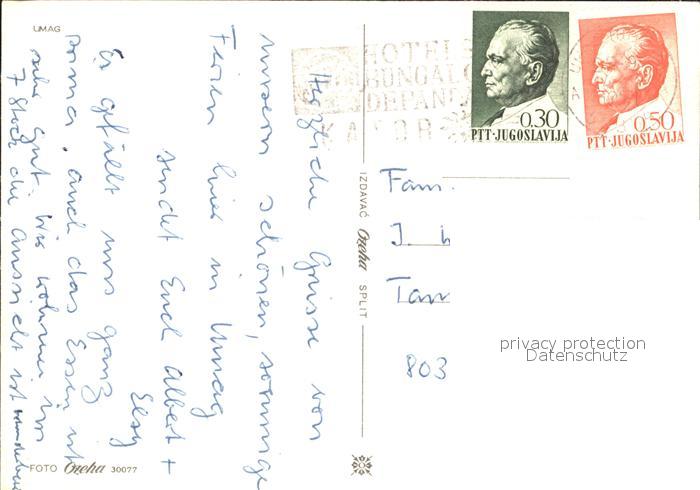 UMAG
HOTEL
BUNGAL
DEPAND
0.30
PTT·JUGOSLAVIJA
0.50
PTT·JUGOSLAVIJA
Herzliche Grüsse von
unseren schönen, sonnige
Ferien hier in Umag
sendet Euch Albert +
Elsy
Es gefällt uns ganz
prima, auch das Essen ist
sehr gut. Wir wohnen im
7 Stock die Aussicht ist
IZDAVAČ Ozeha SPLIT
Fam.
J
Tan
803
privacy protection
Datenschutz
FOTO Ozeha 30077